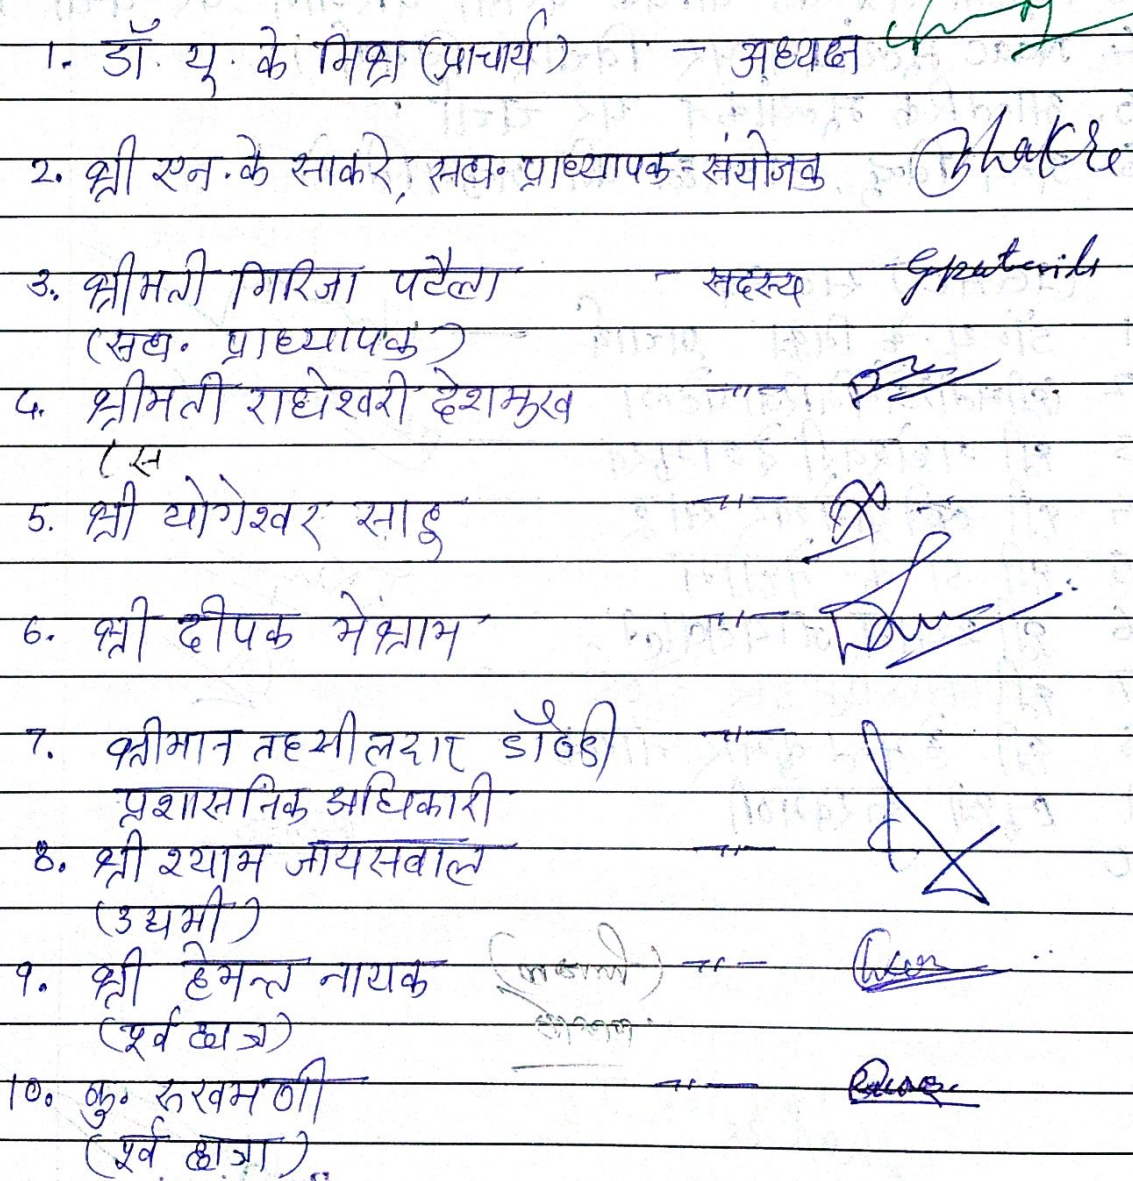 1. डॉ. यू. के मिश्रा (प्राचार्य) - अध्यक्ष
2. श्री एन.के साकरे, सहा. प्राध्यापक - संयोजक
3. श्रीमती गिरिजा पटैला - सदस्य
(सहा. प्राध्यापक)
4. श्रीमती राधेश्वरी देशमुख -"-
(स
5. श्री योगेश्वर साहू -"-
6. श्री दीपक मेश्राम -"-
7. श्रीमान तहसीलदार डौण्डी -"-
प्रशासनिक अधिकारी
8. श्री श्याम जायसवाल -"-
(उद्यमी)
9. श्री हेमन्त नायक -"-
(पूर्व छात्र)
10. कु. रुखमणी -"-
(पूर्व छात्रा)